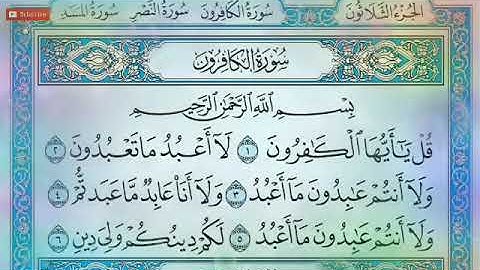 الجزء الثلاثون سورة الكافرون سورة النصر سورة المسد
سُورَةُ الكَافِرُونَ
بِسْمِ اللَّهِ الرَّحْمَٰنِ الرَّحِيمِ
قُلْ يَا أَيُّهَا الْكَافِرُونَ ١ لَا أَعْبُدُ مَا تَعْبُدُونَ ٢
وَلَا أَنتُمْ عَابِدُونَ مَا أَعْبُدُ ٣ وَلَا أَنَا عَابِدٌ مَّا عَبَدتُّمْ ٤
وَلَا أَنتُمْ عَابِدُونَ مَا أَعْبُدُ ٥ لَكُمْ دِينُكُمْ وَلِيَ دِينِ ٦